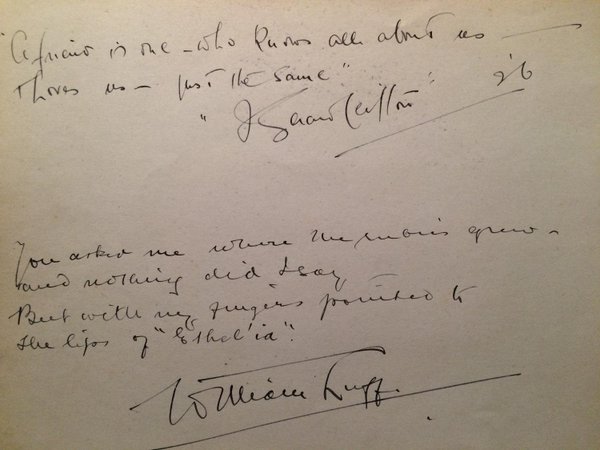 "A friend is one - who knows all about us -
& loves us - just the same".
" Gerard Clifton " '26
You asked me where the rubies grew -
and nothing did I say
But with my fingers pointed to
the lips of "Ethel'ia".
William Luff.